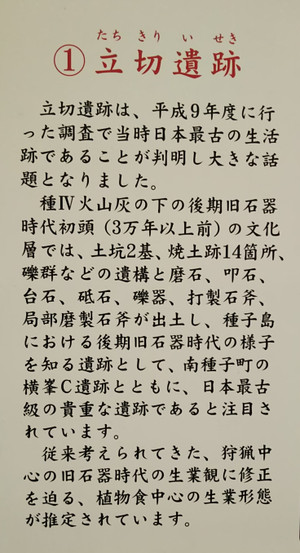 たち きり い せき
①立切遺跡
立切遺跡は、平成9年度に行
った調査で当時日本最古の生活
跡であることが判明し大きな話
題となりました。
種Ⅳ火山灰の下の後期旧石器
時代初頭（3万年以上前）の文化
層では、土坑2基、焼土跡14箇所、
礫群などの遺構と磨石、叩石、
台石、砥石、礫器、打製石斧、
局部磨製石斧が出土し、種子島
における後期旧石器時代の様子
を知る遺跡として、南種子町の
横峯C遺跡とともに、日本最古
級の貴重な遺跡であると注目さ
れています。
従来考えられてきた、狩猟中
心の旧石器時代の生業観に修正
を迫る、植物食中心の生業形態
が推定されています。